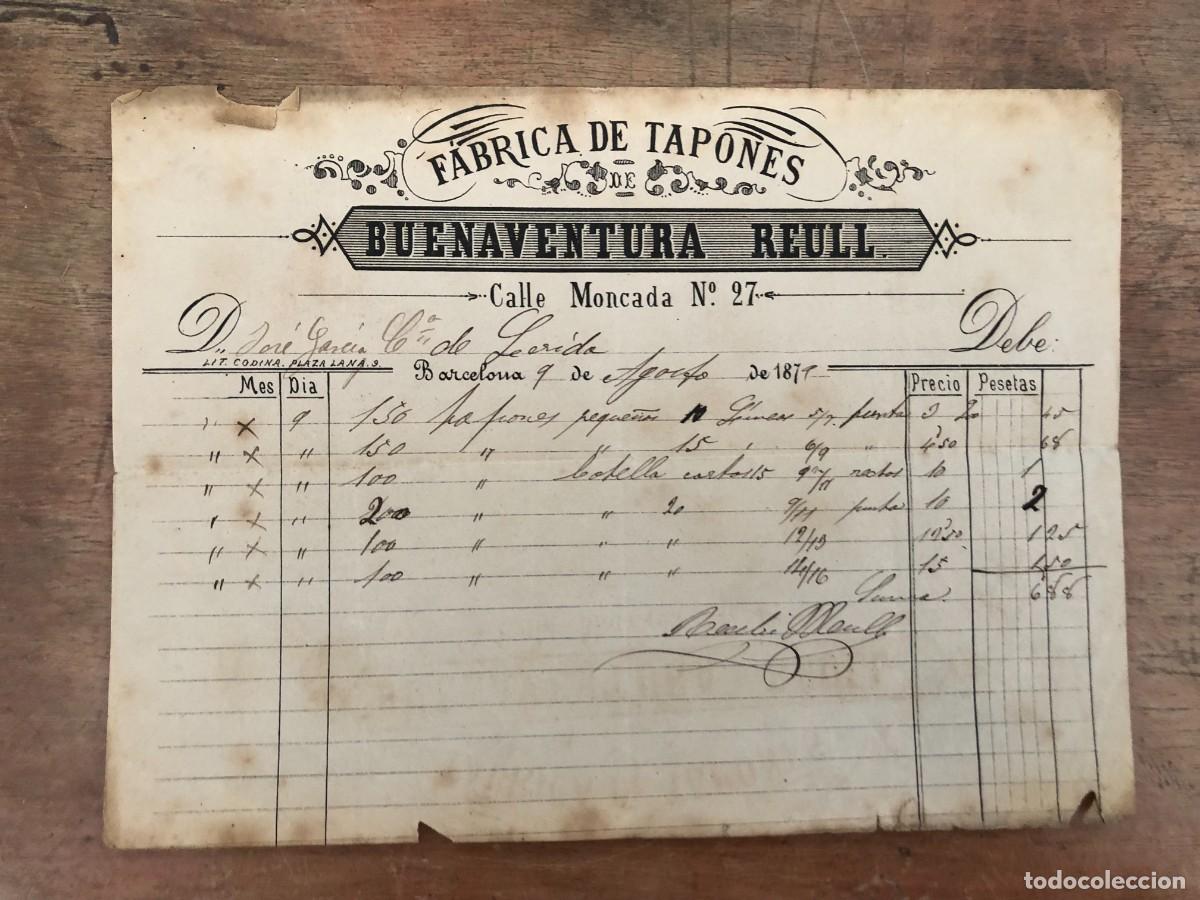 FÁBRICA DE TAPONES
DE
BUENAVENTURA REULL.
Calle Moncada Nº 27
D.n José García Cª de Lerida Debe:
LIT. CODINA. PLAZA LANA. 9.
Barcelona 9 de Agosto de 187
Mes Dia Precio Pesetas
" × 9 150 tapones pequeños 10 lineas 5/7 punta 3 20 45
" × " 150 " " 15 6/9 " 4'50 68
" × " 100 " Botella cortos 15 9/11 rectos 10 1
" × " 200 " " 20 9/11 punta 10 2
" × " 100 " " " 12/13 12'50 1 25
" × " 100 " " " 14/16 15 1 50
Suma. 6'88
Recibi BReull
todocoleccion